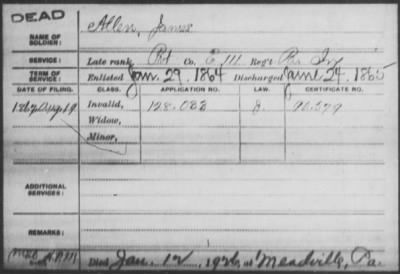 DEAD
NAME OF SOLDIER: Allen, James
SERVICE: Late rank, Pvt Co. E, 111 Reg't Pa. Inf
TERM OF SERVICE: Enlisted Jan. 29, 1864 Discharged June 24, 1865
DATE OF FILING. CLASS. APPLICATION NO. LAW. CERTIFICATE NO.
1867 Aug 19 Invalid, 128.083
Widow,
Minor,
ADDITIONAL SERVICES:
REMARKS:
Died Jan. 12, 1926, at Meadville, Pa.